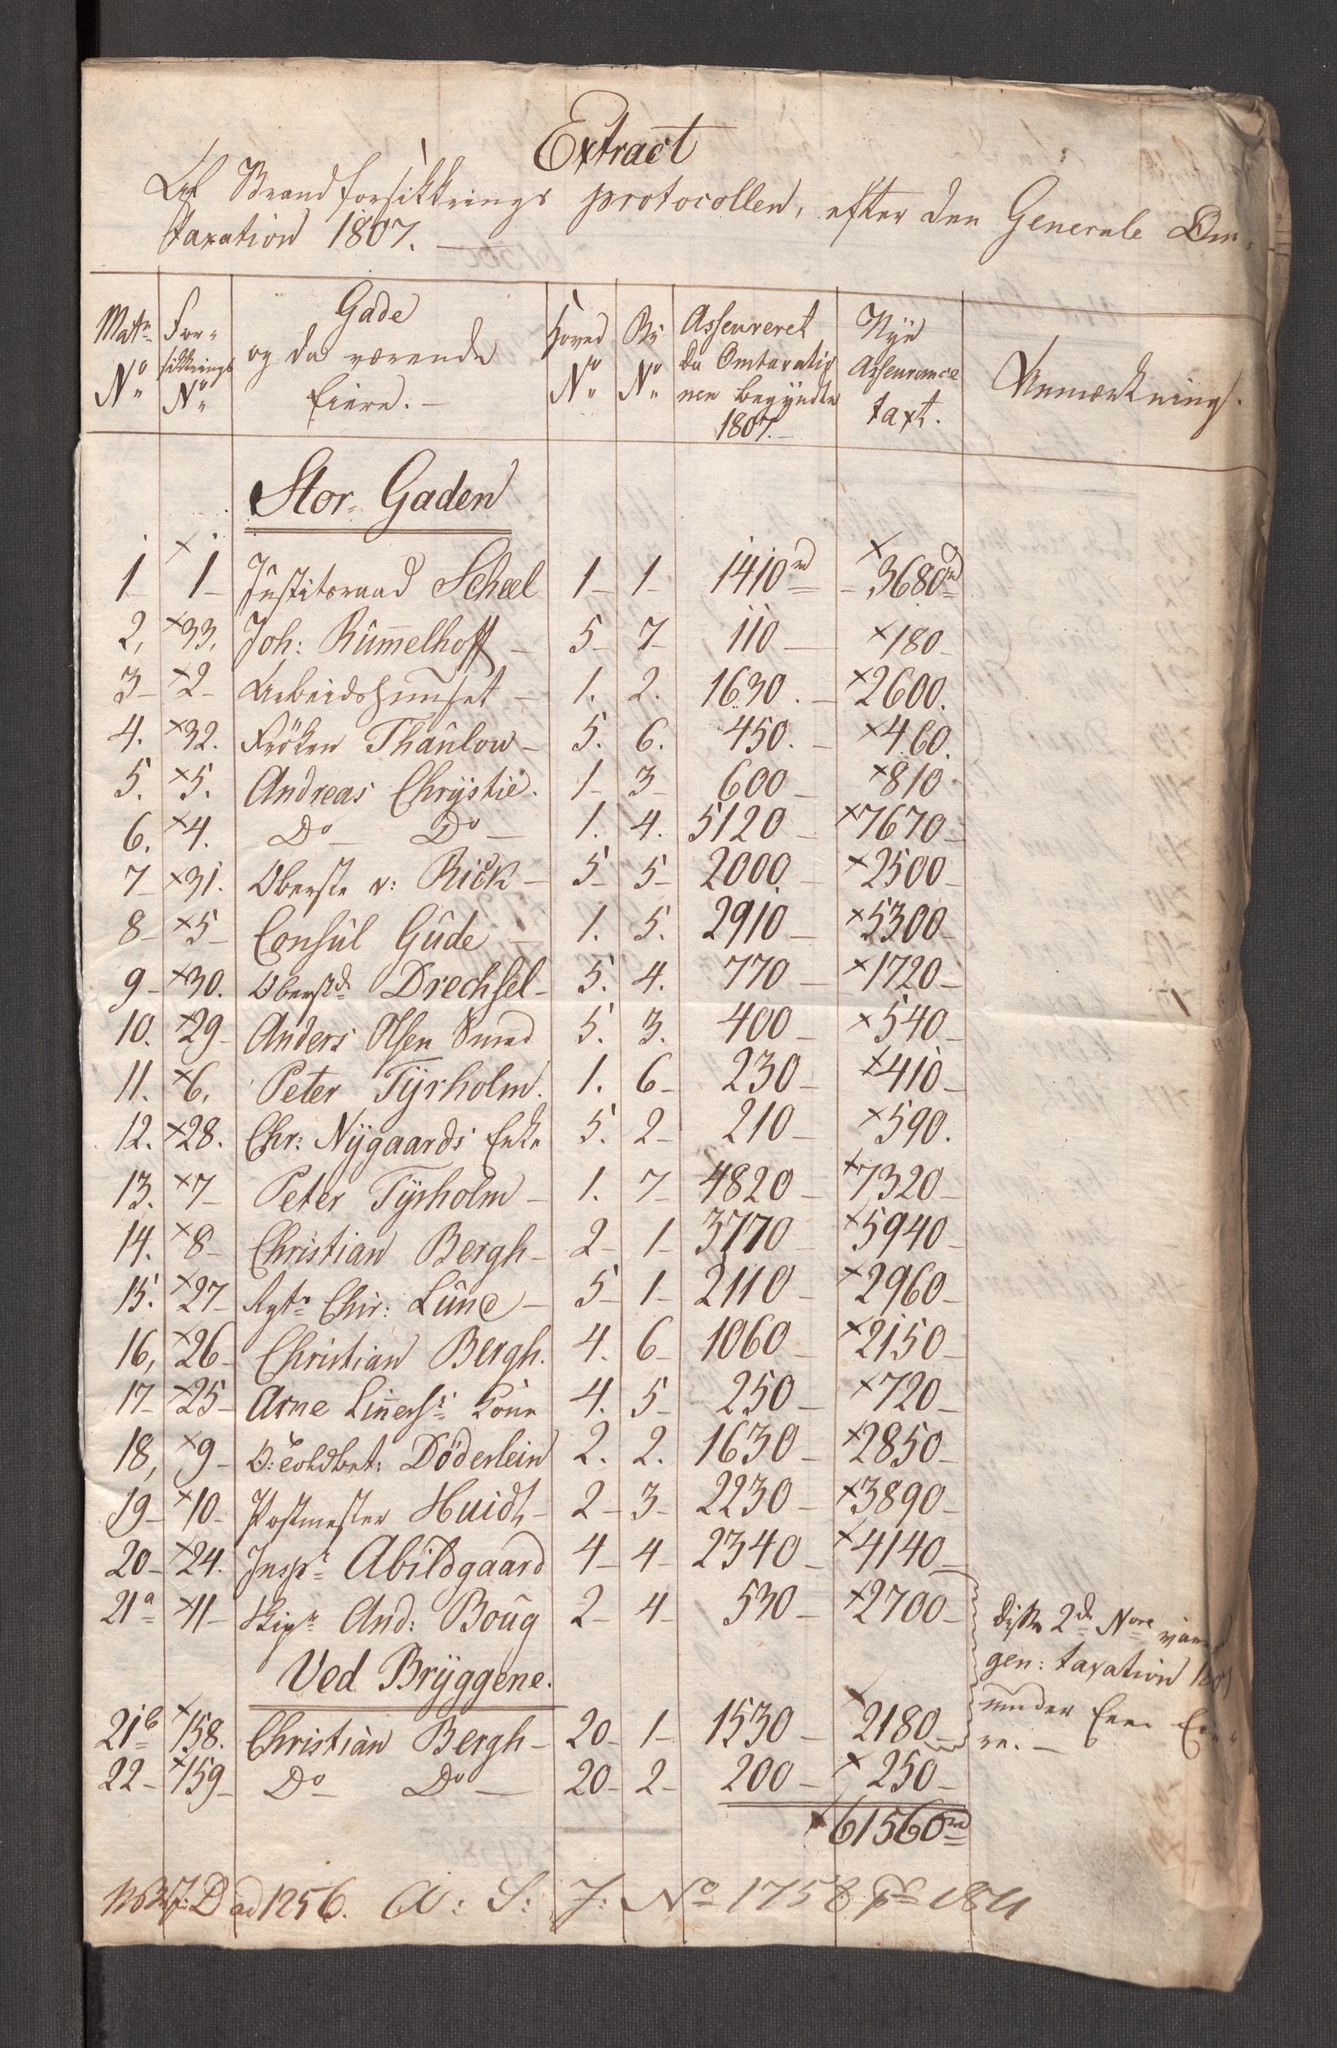 Extract
Af Brandforsikkrings protocollen, efter den Generale Om-
taxation 1807.
Matr. No. | For-sikkrings No. | Gade og da værende Eiere. | Hoved No. | Bi No. | Asseureret da Omtaxatio-nen begyndte 1807. | Nye Asseurance taxt. | Anmærkning.
Stor-Gaden
1 | ×1 | Justitsraad Scheel | 1 | 1 | 1410rd | ×3680rd
2, | ×33, | Joh: Rummelhoff | 5 | 7 | 110 | ×180
3 | ×2 | Arbeidshuuset | 1. | 2. | 1630. | ×2600.
4. | ×32. | Fröken Thaulow | 5. | 6. | 450. | ×460.
5. | ×5. | Andreas Chrystie. | 1 | 3 | 600 | ×810
6. | ×4. | Do Do | 1. | 4. | 5120 | ×7670
7 | ×31. | Oberste v: Rick | 5 | 5 | 2000 | ×2500
8 | ×5 | Consul Gude | 1. | 5. | 2910 | ×5300
9 | ×30. | Oberstl: Drechsel | 5. | 4. | 770 | ×1720
10. | ×29 | Anders Olsen Smed | 5. | 3. | 400 | ×540
11. | ×6, | Peter Tyrholm. | 1. | 6 | 230 | ×410
12. | ×28. | Chr: Nygaards Enke | 5. | 2 | 210 | ×590.
13. | ×7 | Peter Tyrholm | 1. | 7 | 4820 | ×7320
14. | ×8 | Christian Bergh | 2 | 1 | 3770 | ×5940
15. | ×27 | Agtr Chr: Lund | 5 | 1 | 2110 | ×2960
16, | ×26 | Christian Bergh. | 4. | 6 | 1060 | ×2150
17 | ×25 | Arne Kone | 4. | 5 | 250 | ×720
18, | ×9 | O: Toldbet: Döderlein | 2. | 2. | 1630 | ×2850
19 | ×10 | Postmester Huidt | 2 | 3 | 2230 | ×3890
20 | ×24. | Inspr Abildgaard | 4 | 4 | 2340 | ×4140
21a | ×11 | Skipr And: Boug | 2 | 4 | 530 | ×2700
Ved Bryggene.
21b | ×158. | Christian Bergh | 20 | 1 | 1530 | ×2180
22 | ×159 | Do Do | 20 | 2 | 200 | ×250
×61560rd
Disse 2de Nore
gen: taxation
under Een
re.
D ad 1256. A: S: J: No 1758